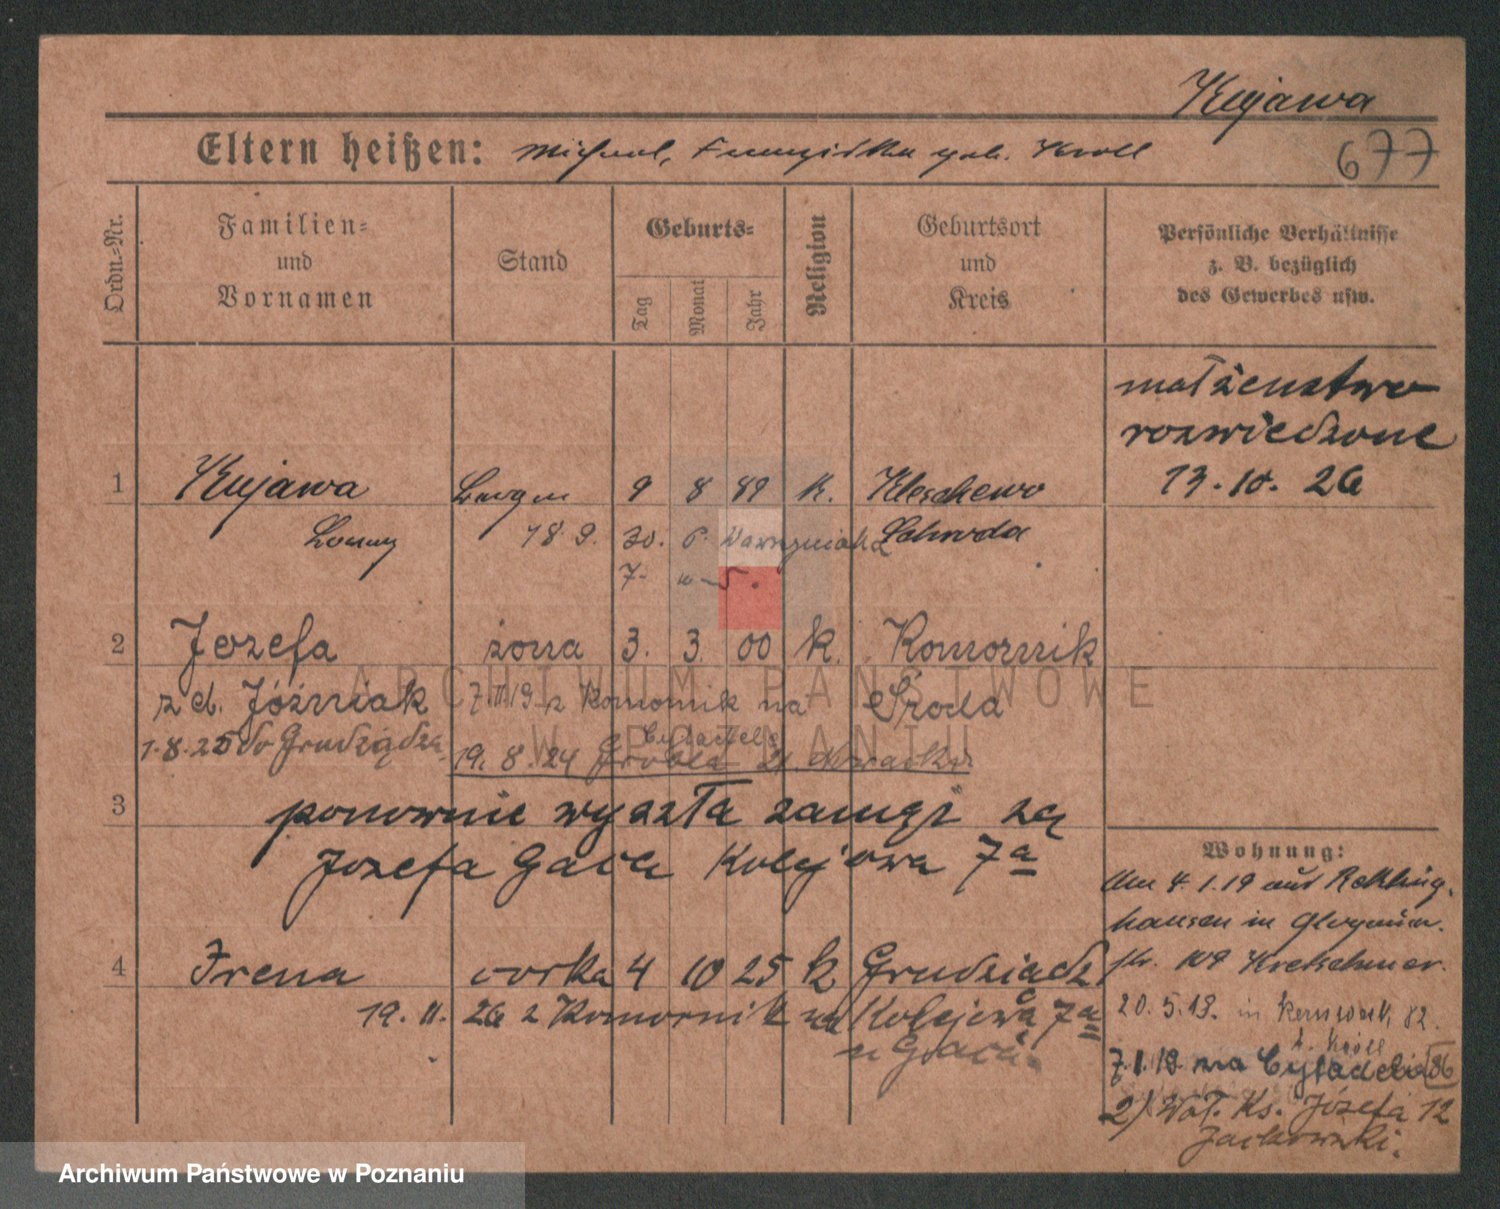 Kujawa
677
Eltern heißen: Michael, Franziska geb. Kroll
Ordn.=Nr.
Familien=
und
Vornamen
Stand
Geburts=
Tag
Monat
Jahr
Religion
Geburtsort
und
Kreis
Persönliche Verhältnisse
z. B. bezüglich
des Gewerbes usw.
małżeństwo
rozwiedzone
13.10.26
1 Kujawa 9 8 89 k. Kleschewo
18.9. 30. 6. Wawrzyniaka Schroda
7. 5.
2 Jozefa żona 3. 3. 00 k. Komornik
z d. Jóźwiak 7.III.19 z Komornik na Środa
1.8.25 do Grudziądza
Cytadela
19.8.24 Grobla
3 ponownie wyszła zamąż za
Jozefa Kolejowa 7a
4 Irena corka 4 10 25 k Grudziadz
19.11.26 z Komornik na Kolejowa 7a
u
Wohnung:
Am 4.1.19 aus Rekling-
hausen in
str. 109 Kretschmer.
20.5.19. in 82.
b. Kroll
7.1.19 na Cytadeli 86
2) Wał. Ks. Józefa 12
ARCHIWUM PAŃSTWOWE
W POZNANIU
Archiwum Państwowe w Poznaniu